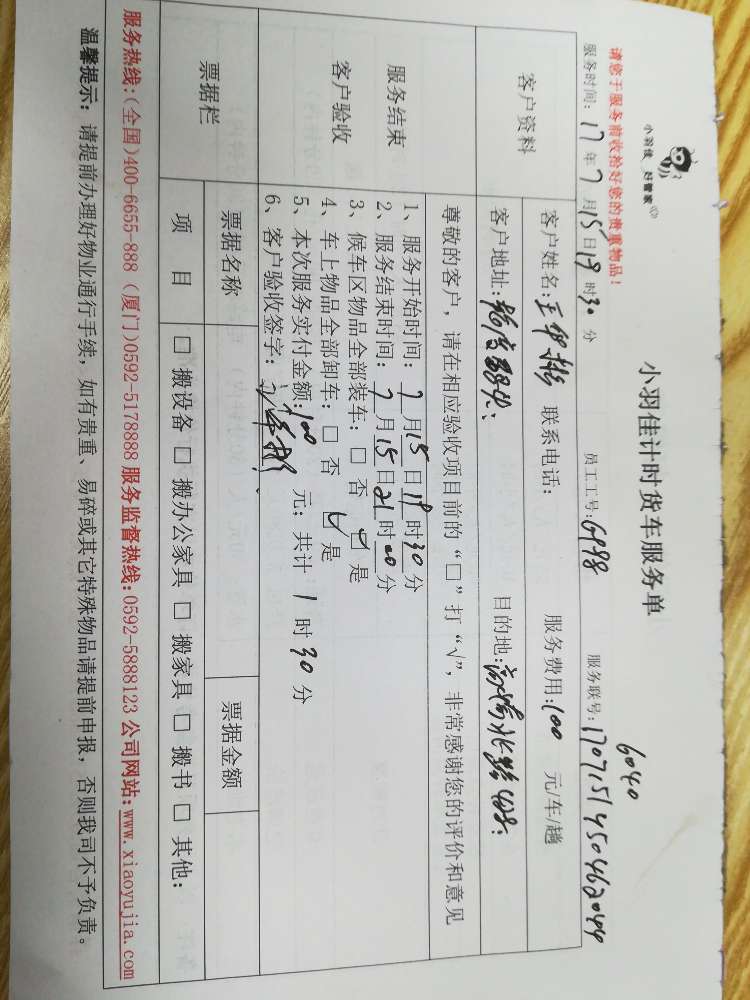 小羽佳 好管家
小羽佳计时货车服务单
6040
请您于服务前收拾好您的贵重物品!
服务时间: 17 年 7 月 15 日 19 时 30 分 员工工号: G998 服务联号: 17071514504462044
客户资料
客户姓名: 王 联系电话: 服务费用: 100 元/车/趟
客户地址: 目的地:
服务结束
客户验收
尊敬的客户，请在相应验收项目前的“□”打“√”，非常感谢您的评价和意见
1、服务开始时间: 7 月 15 日 19 时 30 分
2、服务结束时间: 7 月 15 日 21 时 00 分
3、候车区物品全部装车: □ 否 ☑ 是
4、车上物品全部卸车: □ 否 ☑ 是
5、本次服务实付金额: 100 元; 共计 1 时 30 分
6、客户验收签字:
票据栏
票据名称 票据金额
项 目 □ 搬设备 □ 搬办公家具 □ 搬家具 □ 搬书 □ 其他:
服务热线:(全国)400-6655-888 (厦门)0592-5178888 服务监督热线:0592-5888123 公司网站:www.xiaoyujia.com
温馨提示: 请提前办理好物业通行手续，如有贵重、易碎或其它特殊物品请提前申报，否则我司不予负责。